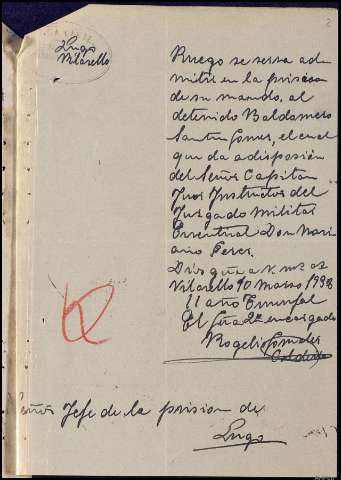 2
Lugo
Vilarello
Ruego se serva ad
mitir en la prision
de su mando, al
detenido Baldomero
Santin Gomes, el cual
queda a disposición
del Señor Capitan
Jues Instructor del
Jusgado Militar
Eventual Don Mari
ano Peres.
Dios gue a V. ms as
Vilarello 10 Marzo 1938
II año Triunfal
El Gua 2º encargado
Rogelio Gonzales
Señor Jefe de la prision de
Lugo